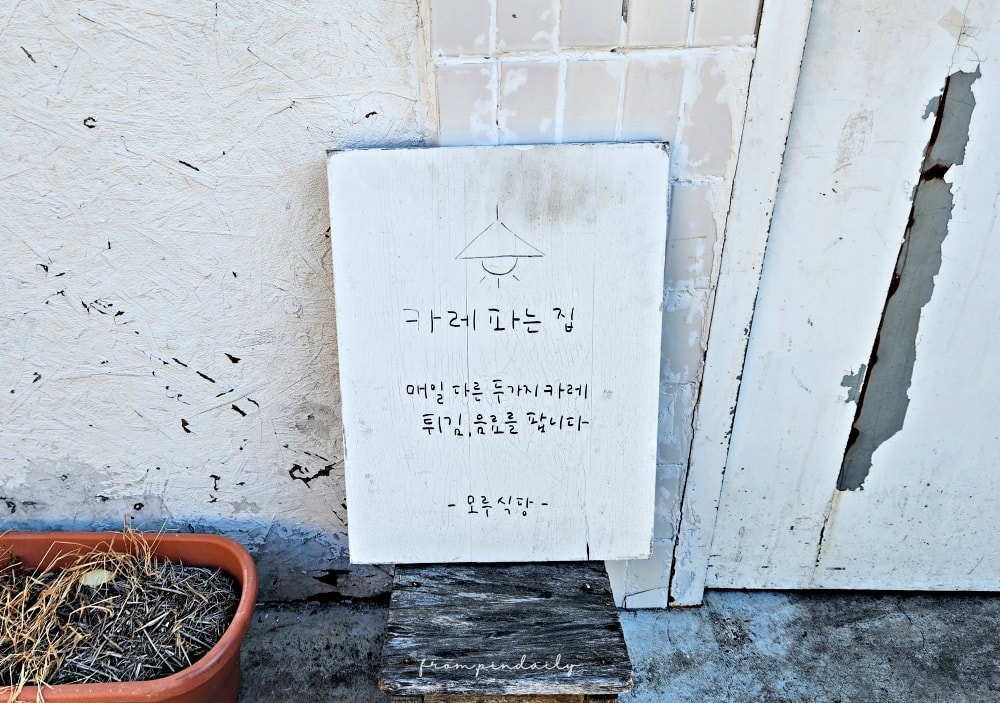 카레 파는 집
매일 다른 두가지 카레
튀김, 음료를 팝니다
- 모루식당 -
frompindaily